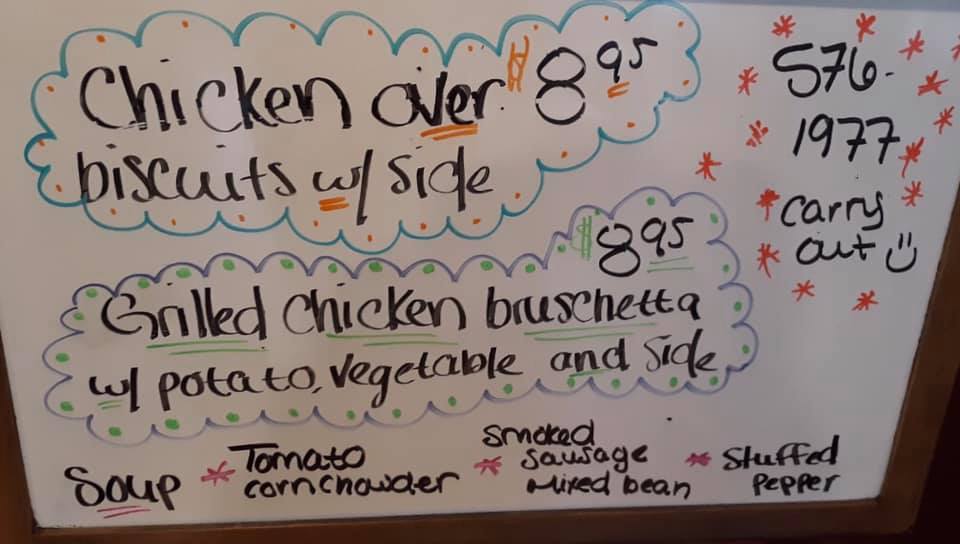 Chicken over $8.95
biscuits w/ side
$8.95
Grilled Chicken bruschetta
w/ potato, vegetable and side
576-
1977
carry
out
Soup
Tomato
corn chowder
smoked
sausage
Mixed bean
Stuffed
Pepper